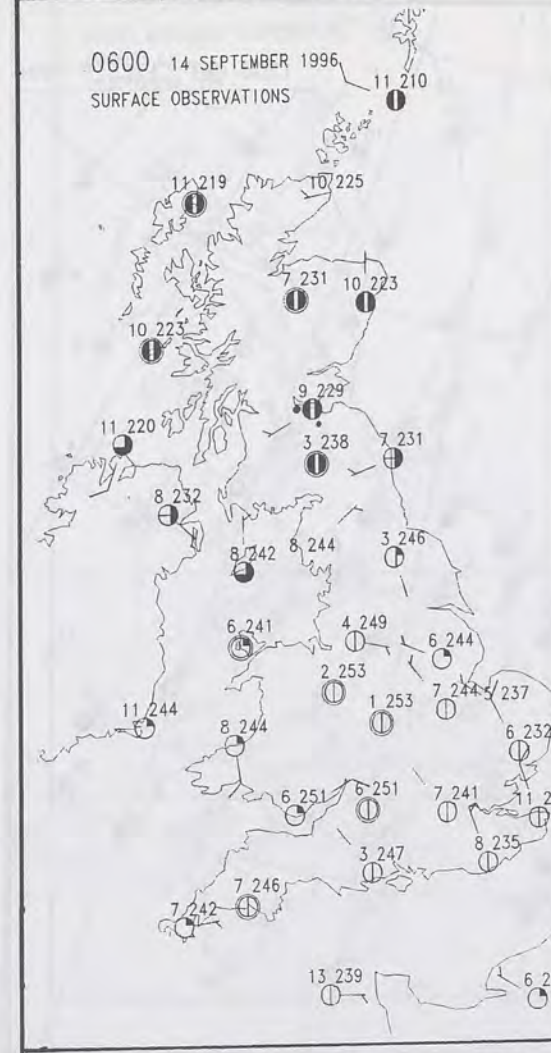 0600 14 SEPTEMBER 1996
SURFACE OBSERVATIONS
11 210
11 219
10 225
7 231
10 223
10 223
9 229
11 220
3 238
7 231
8 232
8 242
8 244
3 246
6 241
4 249
6 244
2 253
7 244
5 237
1 253
11 244
8 244
6 232
6 251
6 251
7 241
11 2
8 235
3 247
7 246
7 242
13 239
6 2